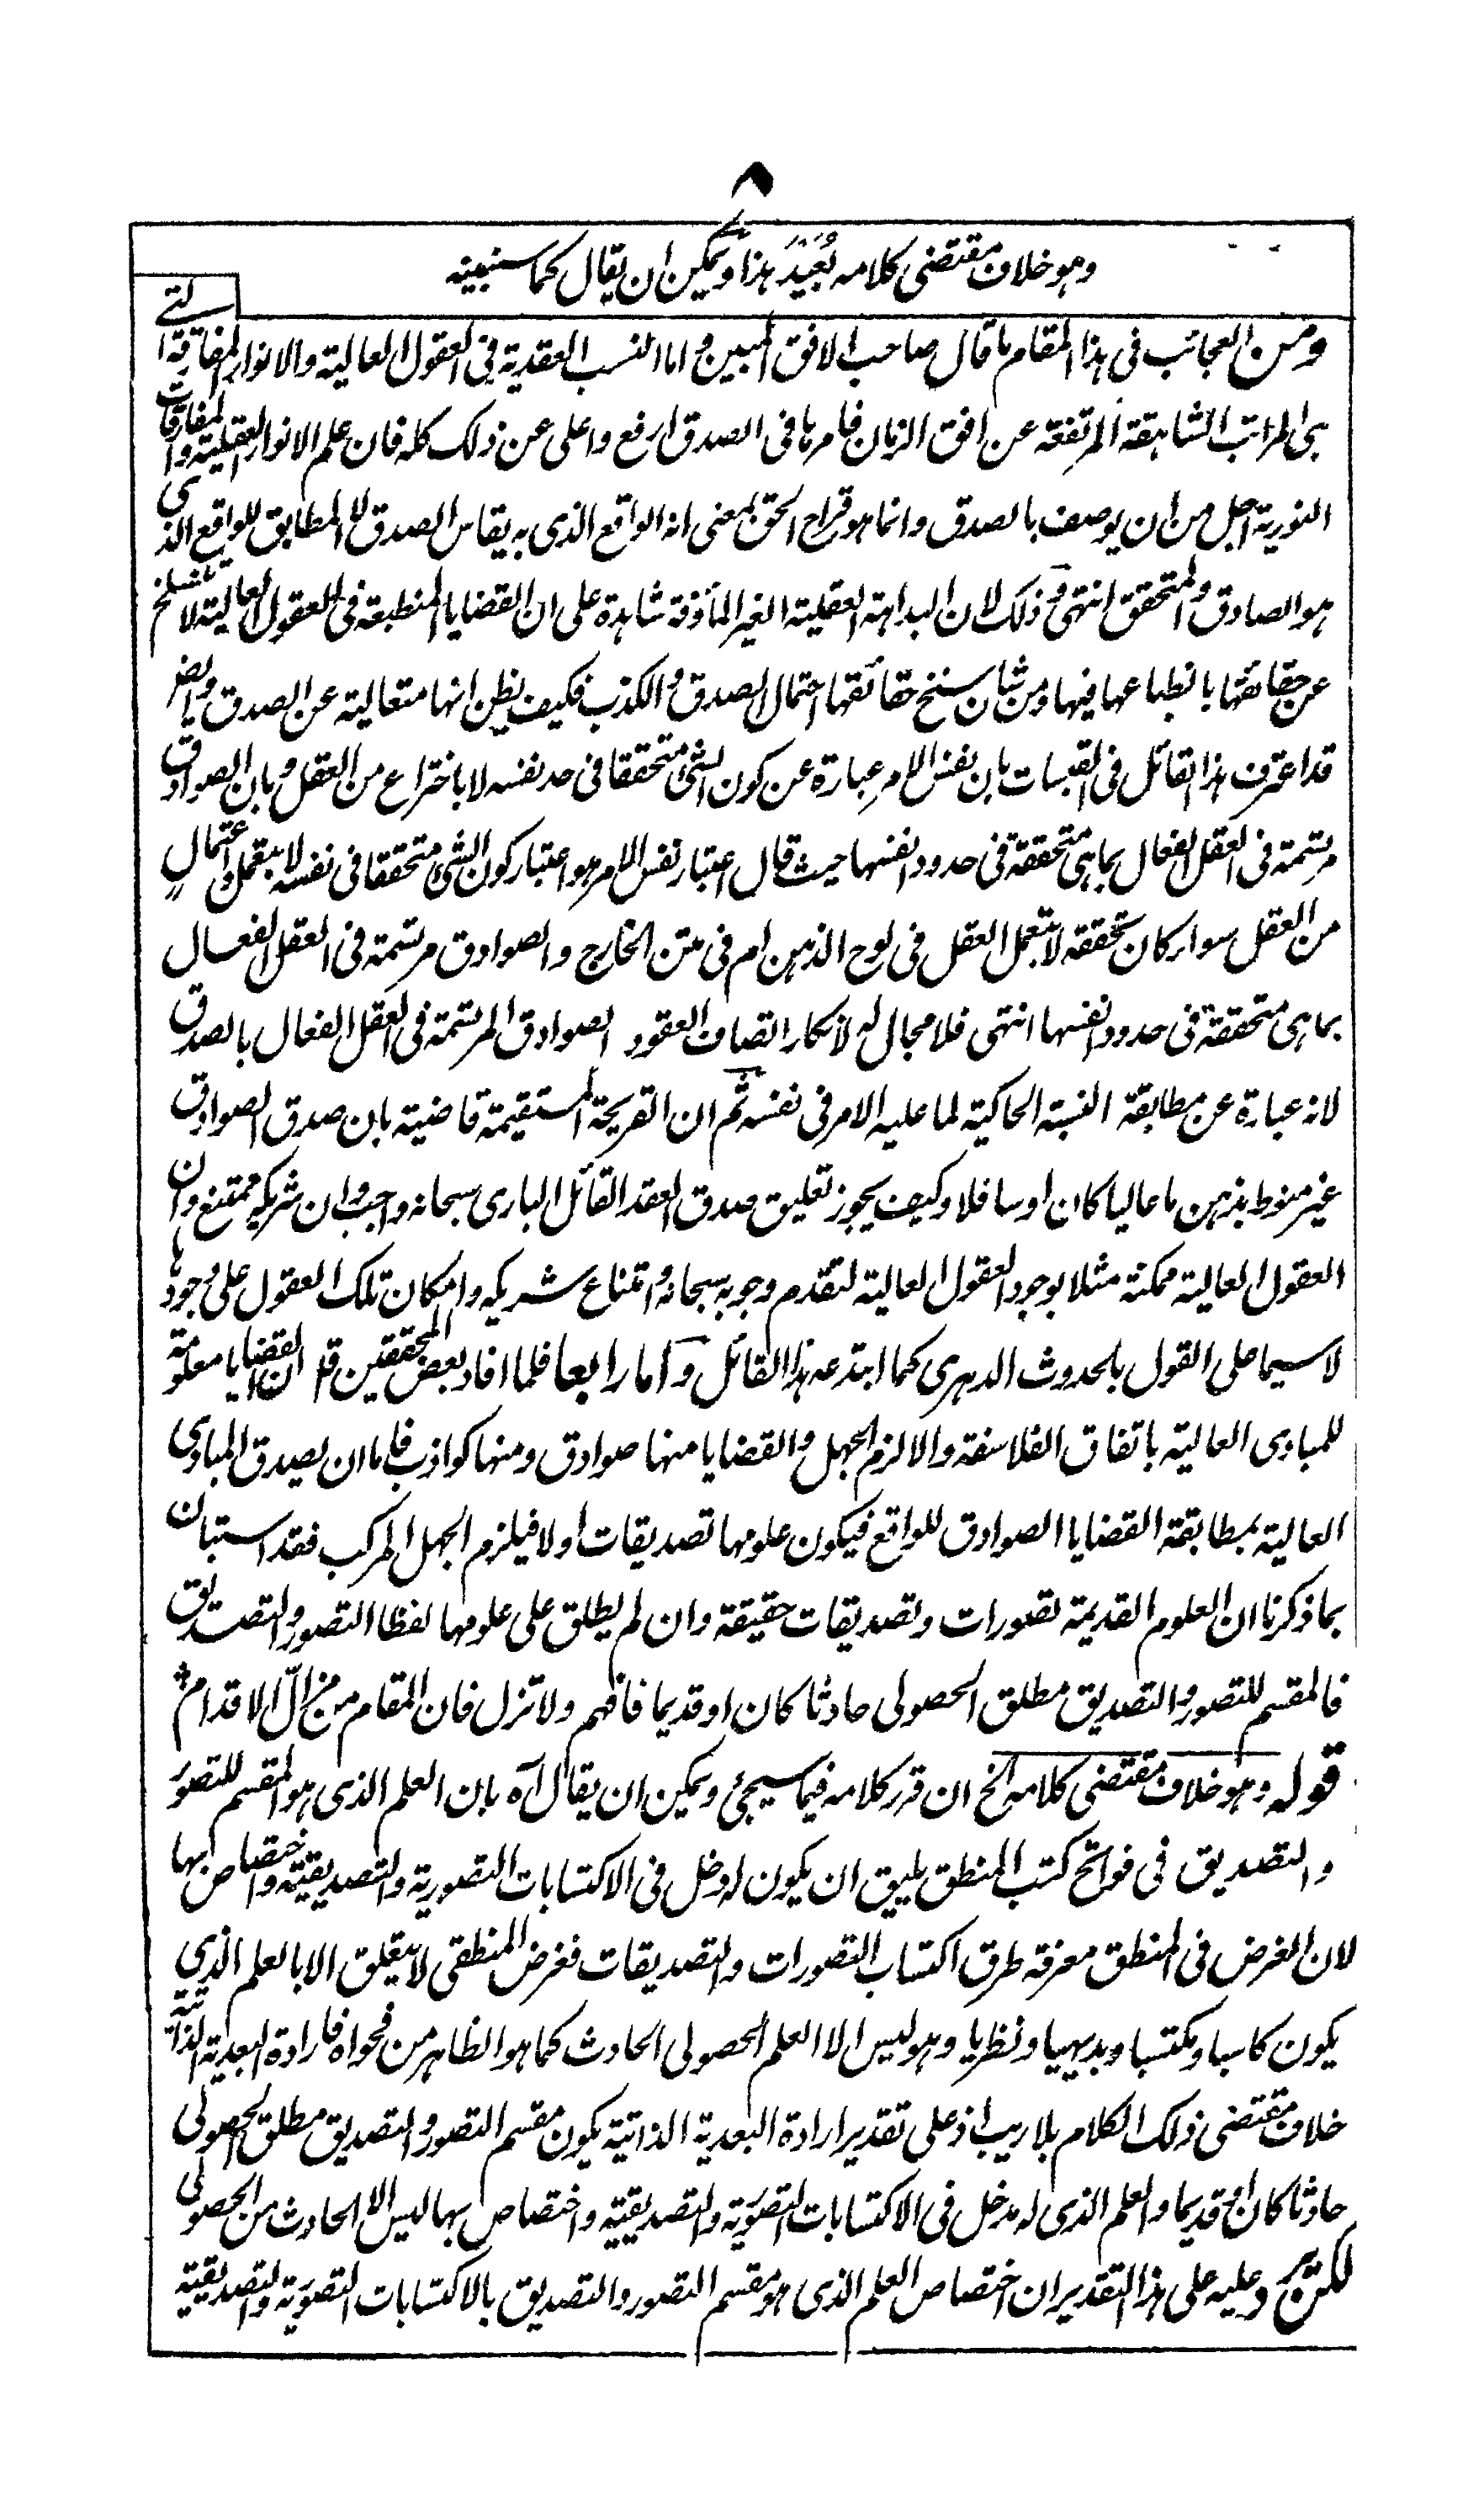 ٨
وهو خلاف مقتضى كلامه بُعَيْدَ هذا ويمكن ان يقال كما سنبينه
ومن العجائب فى هذا المقام ما قال صاحب الافق المبين واما النسب العقدية فى العقول العالية والانوار المفارقة التى
هى المراتب الشاهقة المرتفعة عن افق الزمان فامرها فى الصدق ارفع واعلى عن ذلك كله فان علم الانوار العقلية والمفارقات
النورية اجل من ان يوصف بالصدق وانما هو قراح الحق بمعنى انه الواقع الذى به يقاس الصدق لا المطابق للواقع الذى
هو الصادق والمتحقق انتهى وذلك لان البداهة العقلية الغير المأوفة شاهدة على ان القضايا المنطبعة فى العقول العالية لا تنسلخ
عن حقائقها بانطباعها فيها ومن شان سنخ حقائقها احتمال الصدق والكذب فكيف يظن انها متعالية عن الصدق وايضا
قد اعترف هذا القائل فى القبسات بان نفس الامر عبارة عن كون الشئ متحققا فى حد نفسه لا باختراع من العقل وبان الصوادق
مرتسمة فى العقل الفعال بما هى متحققة فى حدود انفسها حيث قال اعتبار نفس الامر هو اعتبار كون الشئ متحققا فى نفسه لا بتعمل واعتمال
من العقل سواء كان تحققه لا بتعمل العقل فى لوح الذهن ام فى متن الخارج والصوادق مرتسمة فى العقل الفعال
بما هى متحققة فى حدود انفسها انتهى فلا مجال له لانكار اتصاف العقود الصوادق المرتسمة فى العقل الفعال بالصدق
لانه عبارة عن مطابقة النسبة الحاكية لما عليه الامر فى نفسه ثم ان القريحة المستقيمة قاضية بان صدق الصوادق
غير منوط بذهن ما عاليا كان او سافلا وكيف يجوز تعليق صدق العقد القائل البارى سبحانه واجب وان شريكه ممتنع وان
العقول العالية ممكنة مثلا بوجود العقول العالية لتقدم وجوبه سبحانه وامتناع شريكه وامكان تلك العقول على وجودها
لا سيما على القول بالحدوث الدهرى كما ابتدعه هذا القائل واما رابعا فلما افاد بعض المحققين قد ان القضايا معلومة
للمبادى العالية باتفاق الفلاسفة والا لزم الجهل والقضايا منها صوادق ومنها كواذب فاما ان يصدق المبادى
العالية بمطابقة القضايا الصوادق للواقع فيكون علومها تصديقات اولا فيلزم الجهل المركب فقد استبان
بما ذكرنا ان العلوم القديمة تصورات وتصديقات حقيقة وان لم يطلق على علومها لفظا التصور والتصديق
فالمقسم للتصور والتصديق مطلق الحصولى حادثا كان او قديما فافهم ولا تزل فان المقام من مزالّ الاقدام
قوله وهو خلاف مقتضى كلامه الخ ان قرر كلامه فيما سيجئ ويمكن ان يقال آه بان العلم الذى هو المقسم للتصور
والتصديق فى فواتح كتب المنطق يليق ان يكون له دخل فى الاكتسابات التصورية والتصديقية واختصاص بها
لان الغرض فى المنطق معرفة طرق اكتساب التصورات والتصديقات فغرض المنطقى لا يتعلق الا بالعلم الذى
يكون كاسبا ومكتسبا وبديهيا ونظريا وهو ليس الا العلم الحصولى الحادث كما هو الظاهر من فحواه فارادة البعدية الذاتية
خلاف مقتضى ذلك الكلام بلا ريب اذ على تقدير ارادة البعدية الذاتية يكون مقسم التصور والتصديق مطلق الحصولى
حادثا كان او قديما والعلم الذى له مدخل فى الاكتسابات التصورية والتصديقية واختصاص بها ليس الا الحادث من الحصولى
لكن يرد عليه على هذا التقدير ان اختصاص العلم الذى هو مقسم التصور والتصديق بالاكتسابات التصورية والتصديقية